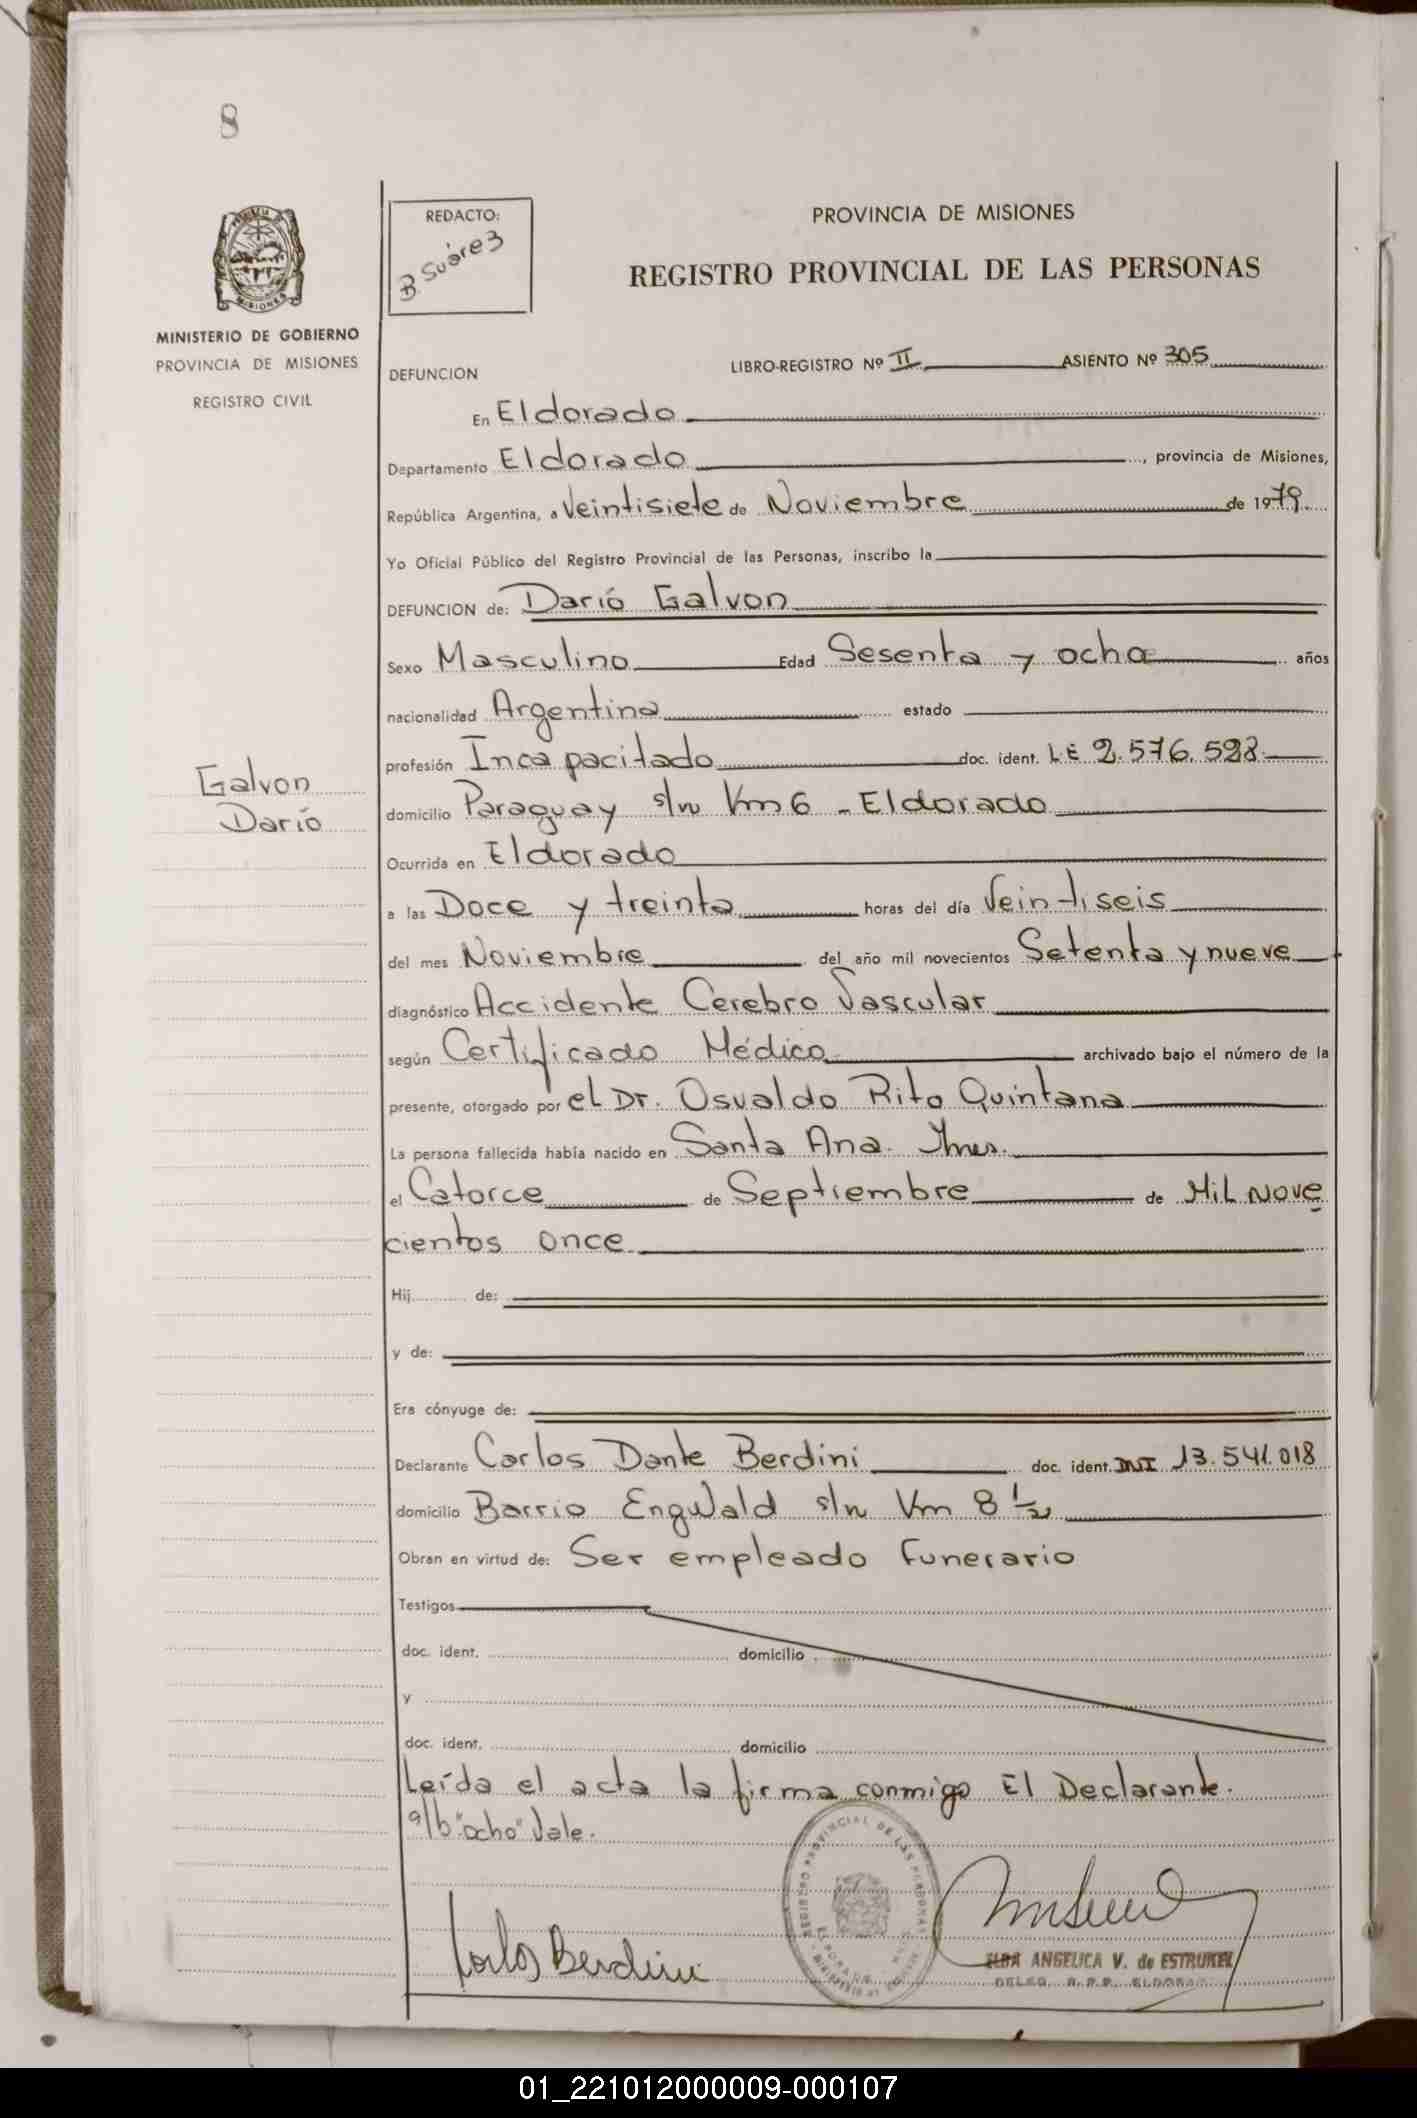 8
REDACTO:
B. Suárez
PROVINCIA DE MISIONES
REGISTRO PROVINCIAL DE LAS PERSONAS
MINISTERIO DE GOBIERNO
PROVINCIA DE MISIONES
REGISTRO CIVIL
DEFUNCION LIBRO-REGISTRO Nº II ASIENTO Nº 305
En Eldorado
Departamento Eldorado, provincia de Misiones,
República Argentina, a Veintisiete de Noviembre de 1979.
Yo Oficial Público del Registro Provincial de las Personas, inscribo la
DEFUNCION de: Darío Galvon
Sexo Masculino Edad Sesenta y ocho años
nacionalidad Argentina estado
profesión Incapacitado doc. ident. LE 2.576.528
Galvon
Darío
domicilio Paraguay s/n Km 6 - Eldorado
Ocurrida en Eldorado
a las Doce y treinta horas del día Veintiseis
del mes Noviembre del año mil novecientos Setenta y nueve
diagnóstico Accidente Cerebro Vascular
según Certificado Médico archivado bajo el número de la
presente, otorgado por el Dr. Osvaldo Rito Quintana
La persona fallecida había nacido en Santa Ana. Mnes.
el Catorce de Septiembre de Mil Nove
cientos once
Hij de:
y de:
Era cónyuge de:
Declarante Carlos Dante Berdini doc. ident. DNI 13.541.018
domicilio Barrio Engwald s/n Km 8 ½
Obran en virtud de: Ser empleado Funerario
Testigos
doc. ident. domicilio
y
doc. ident. domicilio
Leída el acta la firma conmigo El Declarante.
s/b "ocho" Vale.
REGISTRO PROVINCIAL DE LAS PERSONAS
ELDORADO
Carlos Berdini
ELBA ANGELICA V. de ESTRUKEL
DELEG. R.P.P. ELDORADO
01_221012000009-000107